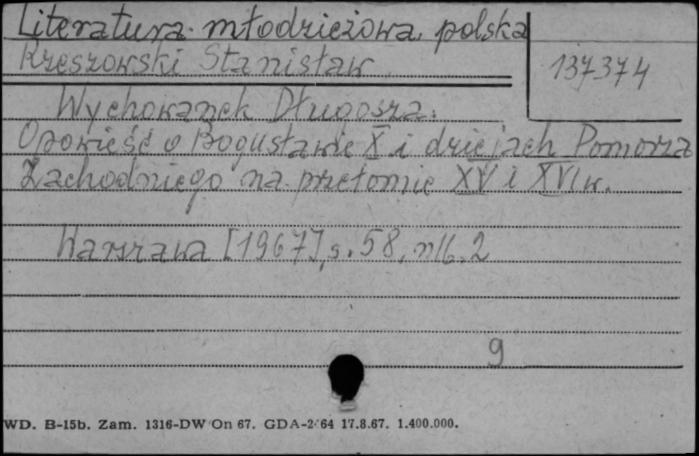 Literatura młodzieżowa polska
Rzeszowski Stanisław
137374
Wychowanek Długosza.
Opowieść o Bogusławie X i dziejach Pomorza
Zachodniego na przełomie XV i XVI w.
Warszawa [1967], s. 58, nlb. 2
9
WD. B-15b. Zam. 1316-DW On 67. GDA-2/64 17.8.67. 1.400.000.